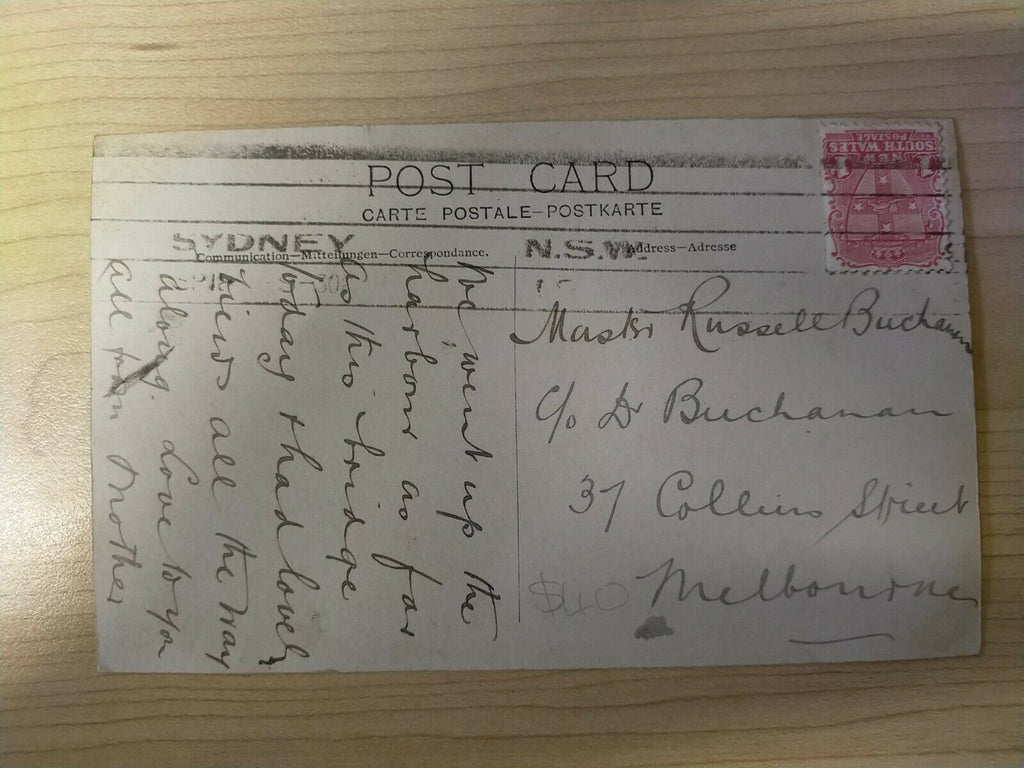 POST CARD
CARTE POSTALE—POSTKARTE
SYDNEY N.S.W.
Communication—Mitteilungen—Correspondance.
Address—Adresse
NEW
SOUTH WALES
POSTAGE
1 1
We went up the
harbour as far
as this bridge
today & had lovely
views all the way
along Love to you
all from Mother
Master Russell Buchanan
c/o Dr Buchanan
37 Collins Street
Melbourne
$40